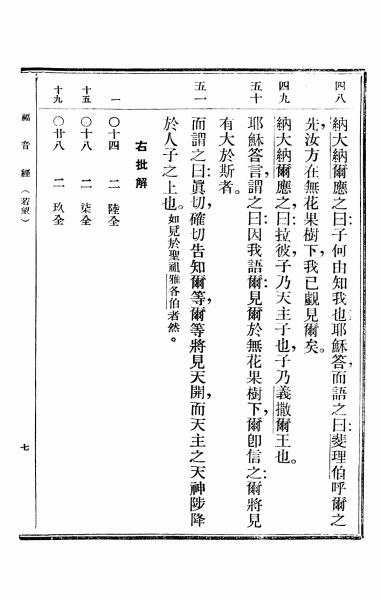 四八 納大納爾應之曰：子何由知我也耶穌答而語之曰：斐理伯呼爾之
先，汝方在無花果樹下，我已覯見爾矣。
四九 納大納爾應之曰：拉彼子乃天主子也，子乃義撒爾王也。
五十 耶穌答言，謂之曰：因我語爾，見爾於無花果樹下，爾卽信之，爾將見
有大於斯者。
五一 而謂之曰：眞切，確切告知爾等，爾等將見天開，而天主之天神陟降
於人子之上也。如見於聖祖雅各伯者然。
右批解
一 〇十四 二 陸全
十五 〇十八 二 柒全
十九 〇廿八 二 玖全
福音經（若望） 七